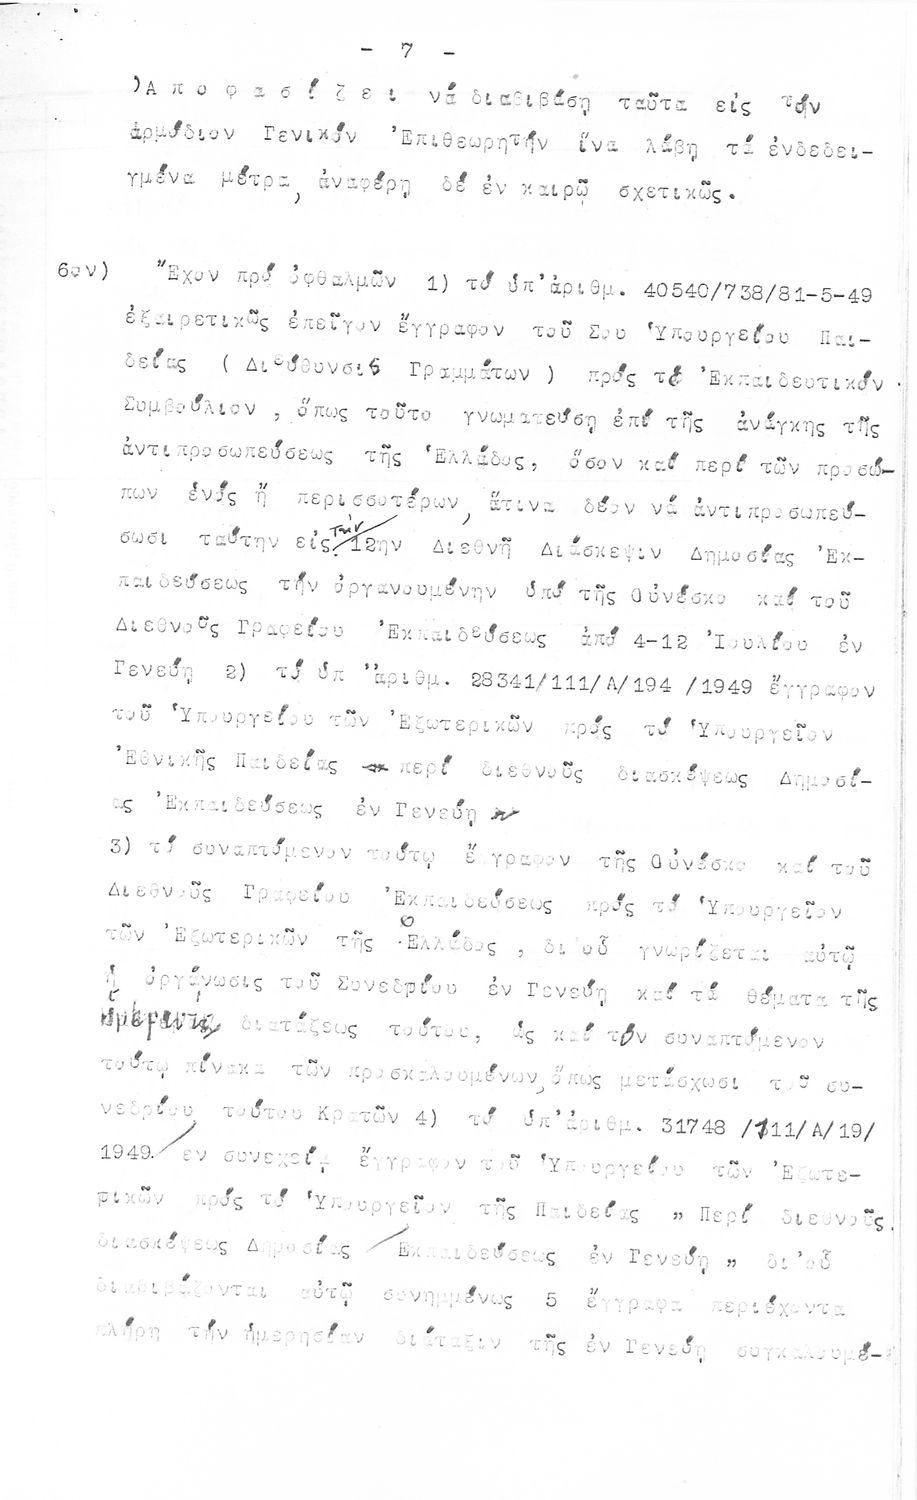 - 7 -
)Α π ο φ α σ ί ζ ε ι νά διαβιβάση ταῦτα εἰς τόν
ἁρμόδιον Γενικόν Ἐπιθεωρητήν ἵνα λάβη τά ἐνδεδει-
γμένα μέτρα, ἀναφέρη δέ ἐν καιρῷ σχετικῶς.
6ον) Ἔχον πρό ὀφθαλμῶν 1) τό ὑπ'ἀριθμ. 40540/738/81-5-49
ἐξαιρετικῶς ἐπεῖγον ἔγγραφον τοῦ Σου Ὑπουργείου Παι-
δείας ( Διεύθυνσις Γραμμάτων ) πρός τό Ἐκπαιδευτικόν
Συμβούλιον , ὅπως τοῦτο γνωματεύση ἐπί τῆς ἀνάγκης τῆς
ἀντιπροσωπεύσεως τῆς Ἑλλάδος, ὅσον καί περί τῶν προσώ-
πων ἑνός ἤ περισσοτέρων, ἅτινα δέον νά ἀντιπροσωπεύ-
σωσι ταύτην εἰς τήν 12ην Διεθνῆ Διάσκεψιν Δημοσίας Ἐκ-
παιδεύσεως τήν ὀργανουμένην ὑπό τῆς Οὐνέσκο καί τοῦ
Διεθνοῦς Γραφείου Ἐκπαιδεύσεως ἀπό 4-12 Ἰουλίου ἐν
Γενεύη 2) τό ὑπ ἀριθμ. 28341/111/Α/194 /1949 ἔγγραφον
τοῦ Ὑπουργείου τῶν Ἐξωτερικῶν πρός τό Ὑπουργεῖον
Ἐθνικῆς Παιδείας περί διεθνοῦς διασκέψεως Δημοσί-
ας Ἐκπαιδεύσεως ἐν Γενεύη
3) τό συναπτόμενον τούτῳ ἔγγραφον τῆς Οὐνέσκο καί τοῦ
Διεθνοῦς Γραφείου Ἐκπαιδεύσεως πρός τό Ὑπουργεῖον
τῶν Ἐξωτερικῶν τῆς Ἑλλάδος , δι'οὗ γνωρίζεται αὐτῷ
ἡ ὀργάνωσις τοῦ Συνεδρίου ἐν Γενεύη καί τά θέματα τῆς
διατάξεως τούτου, ὡς καί τόν συναπτόμενον
τούτῳ πίνακα τῶν προσκαλουμένων, ὅπως μετάσχωσι τοῦ συ-
νεδρίου τούτου Κρατῶν 4) τό ὑπ'ἀριθμ. 31748 /111/Α/19/
1949 ἐν συνεχείᾳ ἔγγραφον τοῦ Ὑπουργείου τῶν Ἐξωτε-
ρικῶν πρός τό Ὑπουργεῖον τῆς Παιδείας „ Περί διεθνοῦς
διασκέψεως Δημοσίας Ἐκπαιδεύσεως ἐν Γενεύη „ δι'οὗ
διαβιβάζονται αὐτῷ συνημμένως 5 ἔγγραφα περιέχοντα
πλήρη τήν ἡμερησίαν διάταξιν τῆς ἐν Γενεύη συγκαλουμέ-